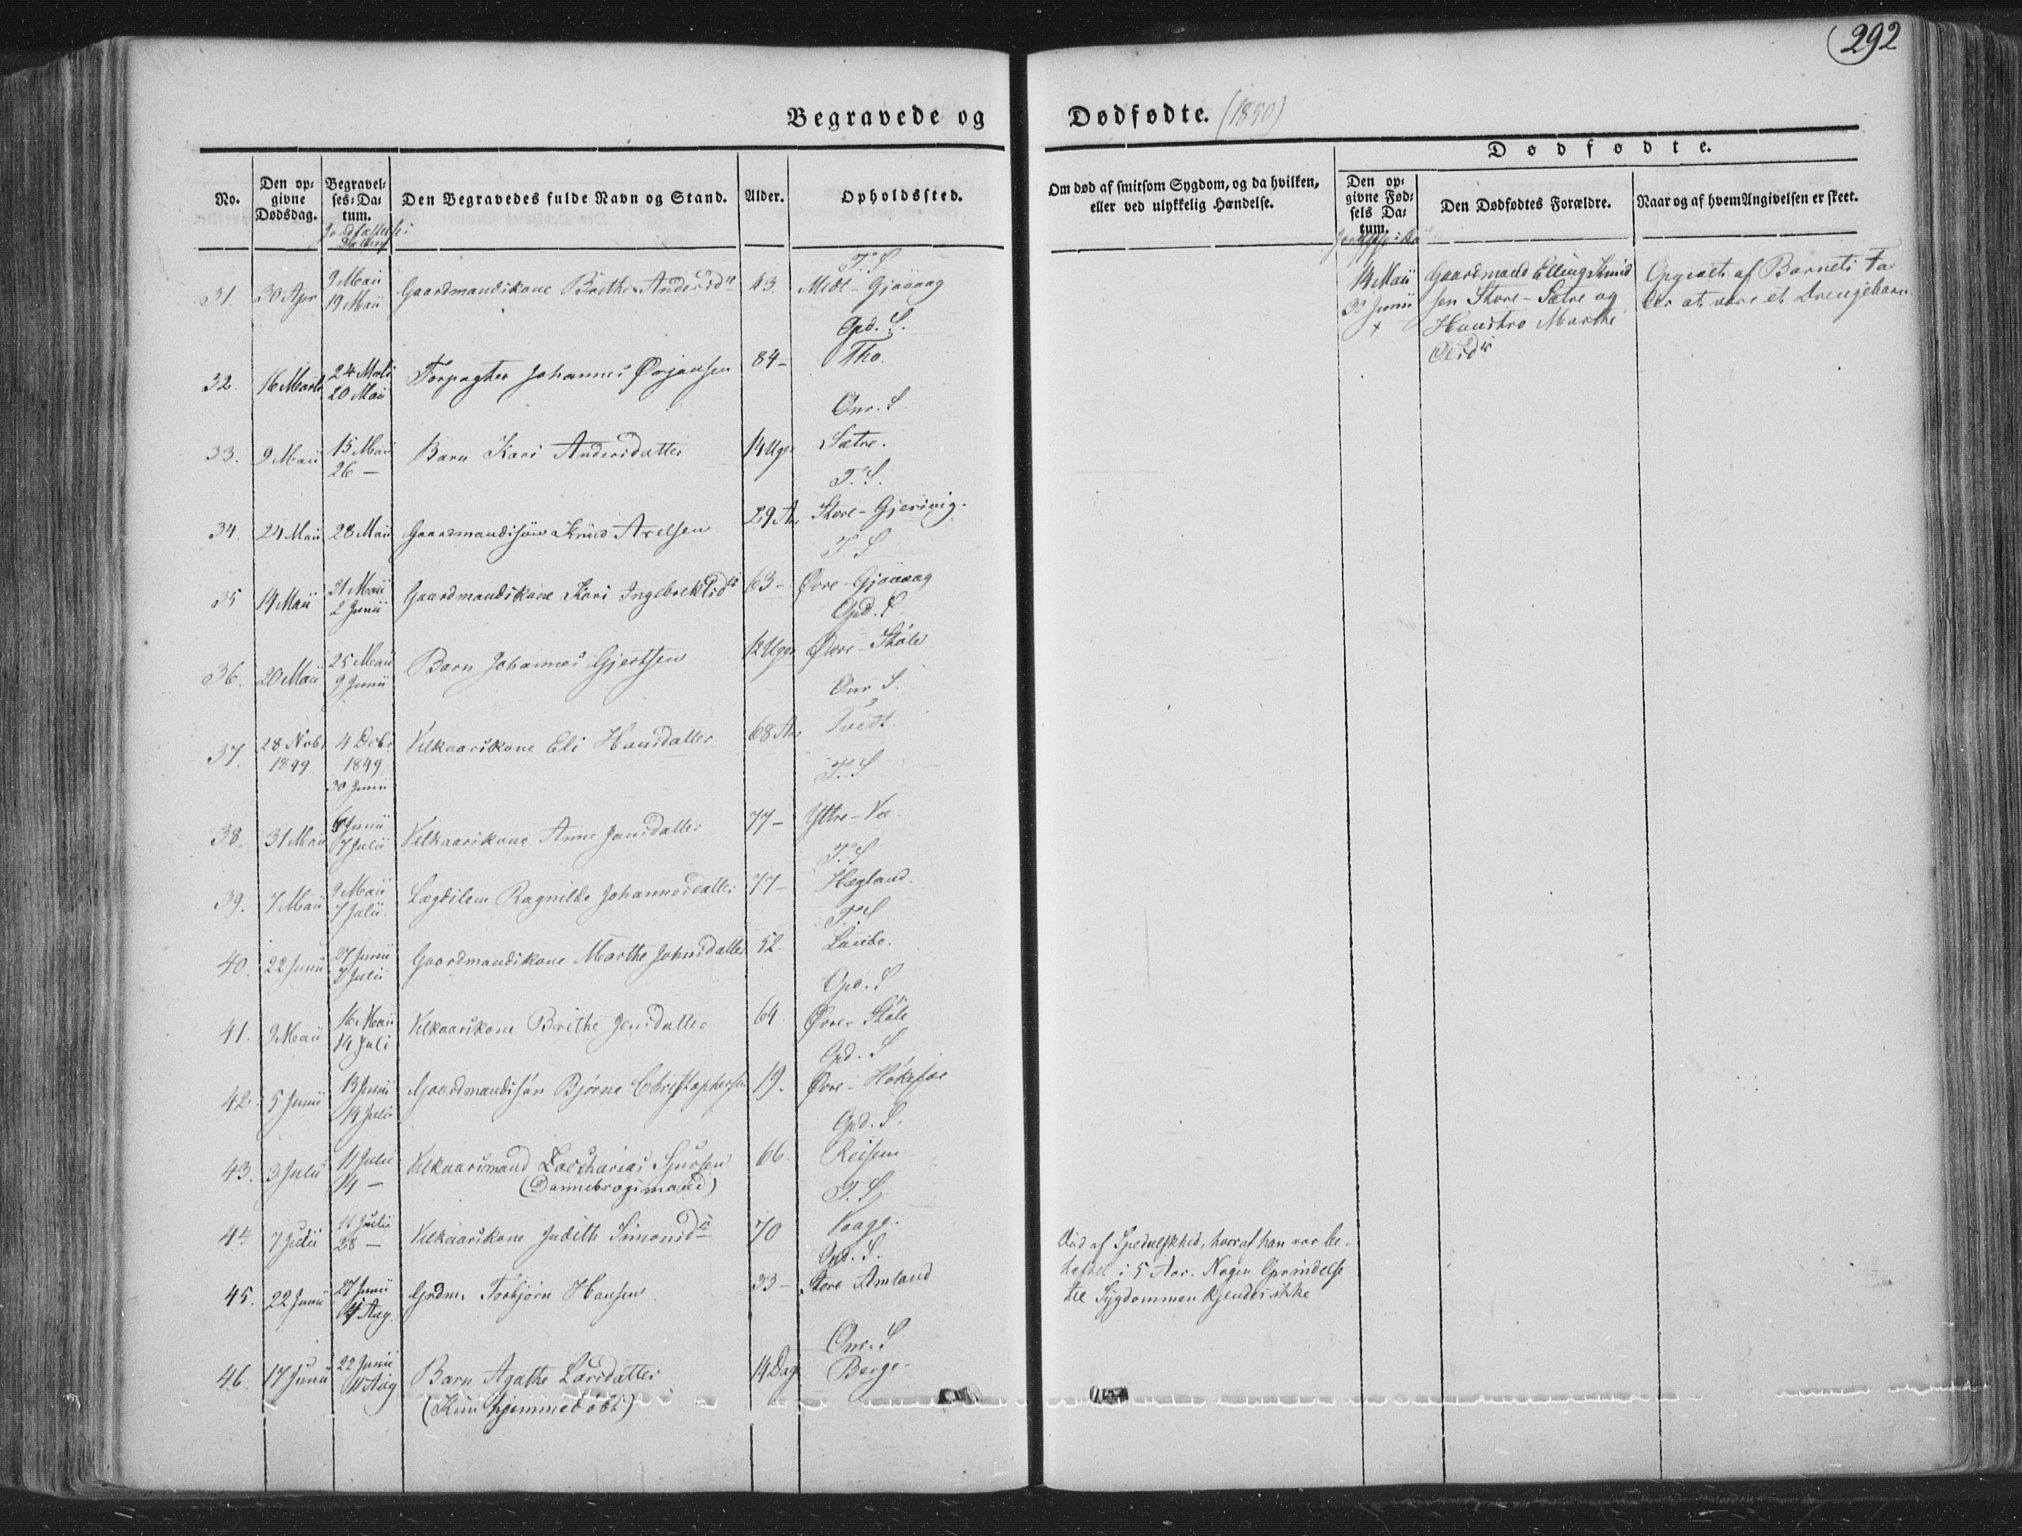 292
Begravede og Dødfødte. (1850)
No.
Den opgivne Dødsdag.
Begravelses-Datum.
Den Begravedes fulde Navn og Stand.
Alder.
Opholdssted.
Om død af smitsom Sygdom, og da hvilken, eller ved ulykkelig Hændelse.
Dødfødte.
Den opgivne Fødsels Datum.
Den Dødfødtes Forældre.
Naar og af hvem Angivelsen er skeet.
T. S
31. 30 Apr 9 Maii Gaardmandskone Brithe Andersdr 43. Midt-Gjøvaag
19 Maii
Opd. S.
32. 16 Marts 24 Marts Forpagter Johannes Ørjansen 84- Tho.
20 Maii
Onr. S
33. 9 Maii 15 Maii Barn Kari Andersdatter 14 Uger Sætre.
26 —
T. S.
34. 24 Maii 28 Maii Gaardmandssøn Knud Axelsen 29 Ar Store-Gjerivig.
T. S
35 14 Maii 21 Maii Gaardmandskone Kari Ingebrektsdr 63- Øvre-Gjøvaag
2 Junii
Opd. S.
36. 20 Maii 25 Maii Barn Johannes Gjertsen 12 Uger Øvre-Støle
9 Junii
Onr S.
37. 28 Novbr 4 Dcbr Vilkaarskone Eli Hansdatter 68 Ar Tvedt.
1849. 1849
30 Junii
T. S
38. 31 Maii 6 Junii Vilkaarskone Anne Jansdatter 77- Yttre-Vee.
7 Julii
T. S
39. 7 Maii 9 Maii Lægdslem Ragnilde Johannesdatter 77- Hægland.
7 Julii
T. S
40. 22 Junii 27 Junii Gaardmandskone Marthe Johnsdatter 52- Lunde.
7 Julii
Opd. S
41. 9 Maii 16 Maii Vilkaarskone Brithe Jensdatter 64. Øvre-Støle
14 Juli
Opd. S
42. 5 Junii 13 Junii Gaardmandssøn Bjørne Christophersen 19. Øvre-Haketoe
14 Juli
Opd. S.
43. 3 Julii 11 Julii Vilkaarsmand Zacharias Sjursen 66. Reisem
14 — (Dannebrogsmand)
T. S
44 7 Julii 11 Julii Vilkaarskone Judith Simonsdr 70 Vaage.
28 —
Opd. S.
45. 22 Junii 27 Junii Grdm. Torbjørn Hansen 33- Store Amland
4 Aug.
Onr. S
46. 17 Junii 22 Junii Barn Agathe Larsdatter 14 Dage Berge-
11 Aug (Kun hjemmedøbt)
Død af Spedalskhed, hvoraf han var be-
heftet i 5 Aar. Nogen Oprindelse
til Sygdommen kjendes ikke
14 Maii Gaardmand Elling Knud Opgivet af Barnets Fa
3 Junii sen Store-Sætre og der at være et Drengebarn.
+ Hustro Marthe
Olsdr